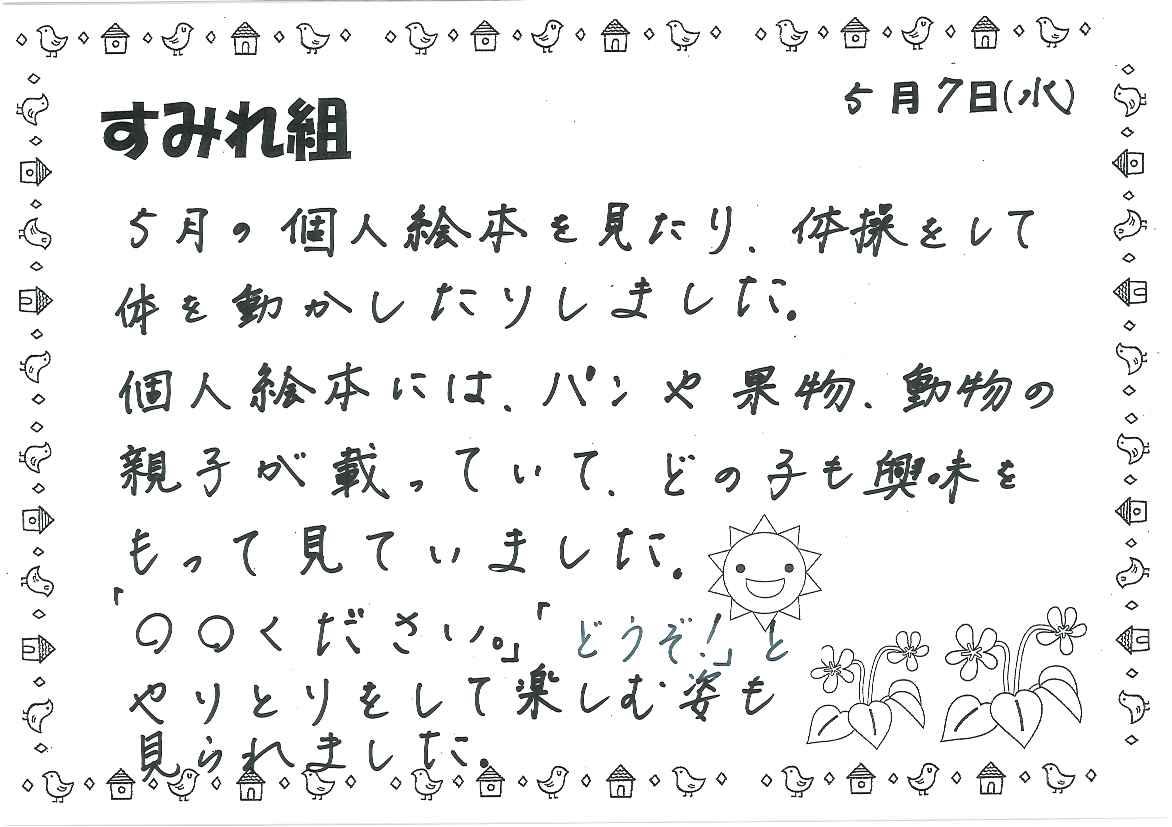 5月7日(水)
すみれ組
5月の個人絵本を見たり、体操をして
体を動かしたりしました。
個人絵本には、パンや果物、動物の
親子が載っていて、どの子も興味を
もって見ていました。
「○○ください。」「どうぞ!」と
やりとりをして楽しむ姿も
見られました。